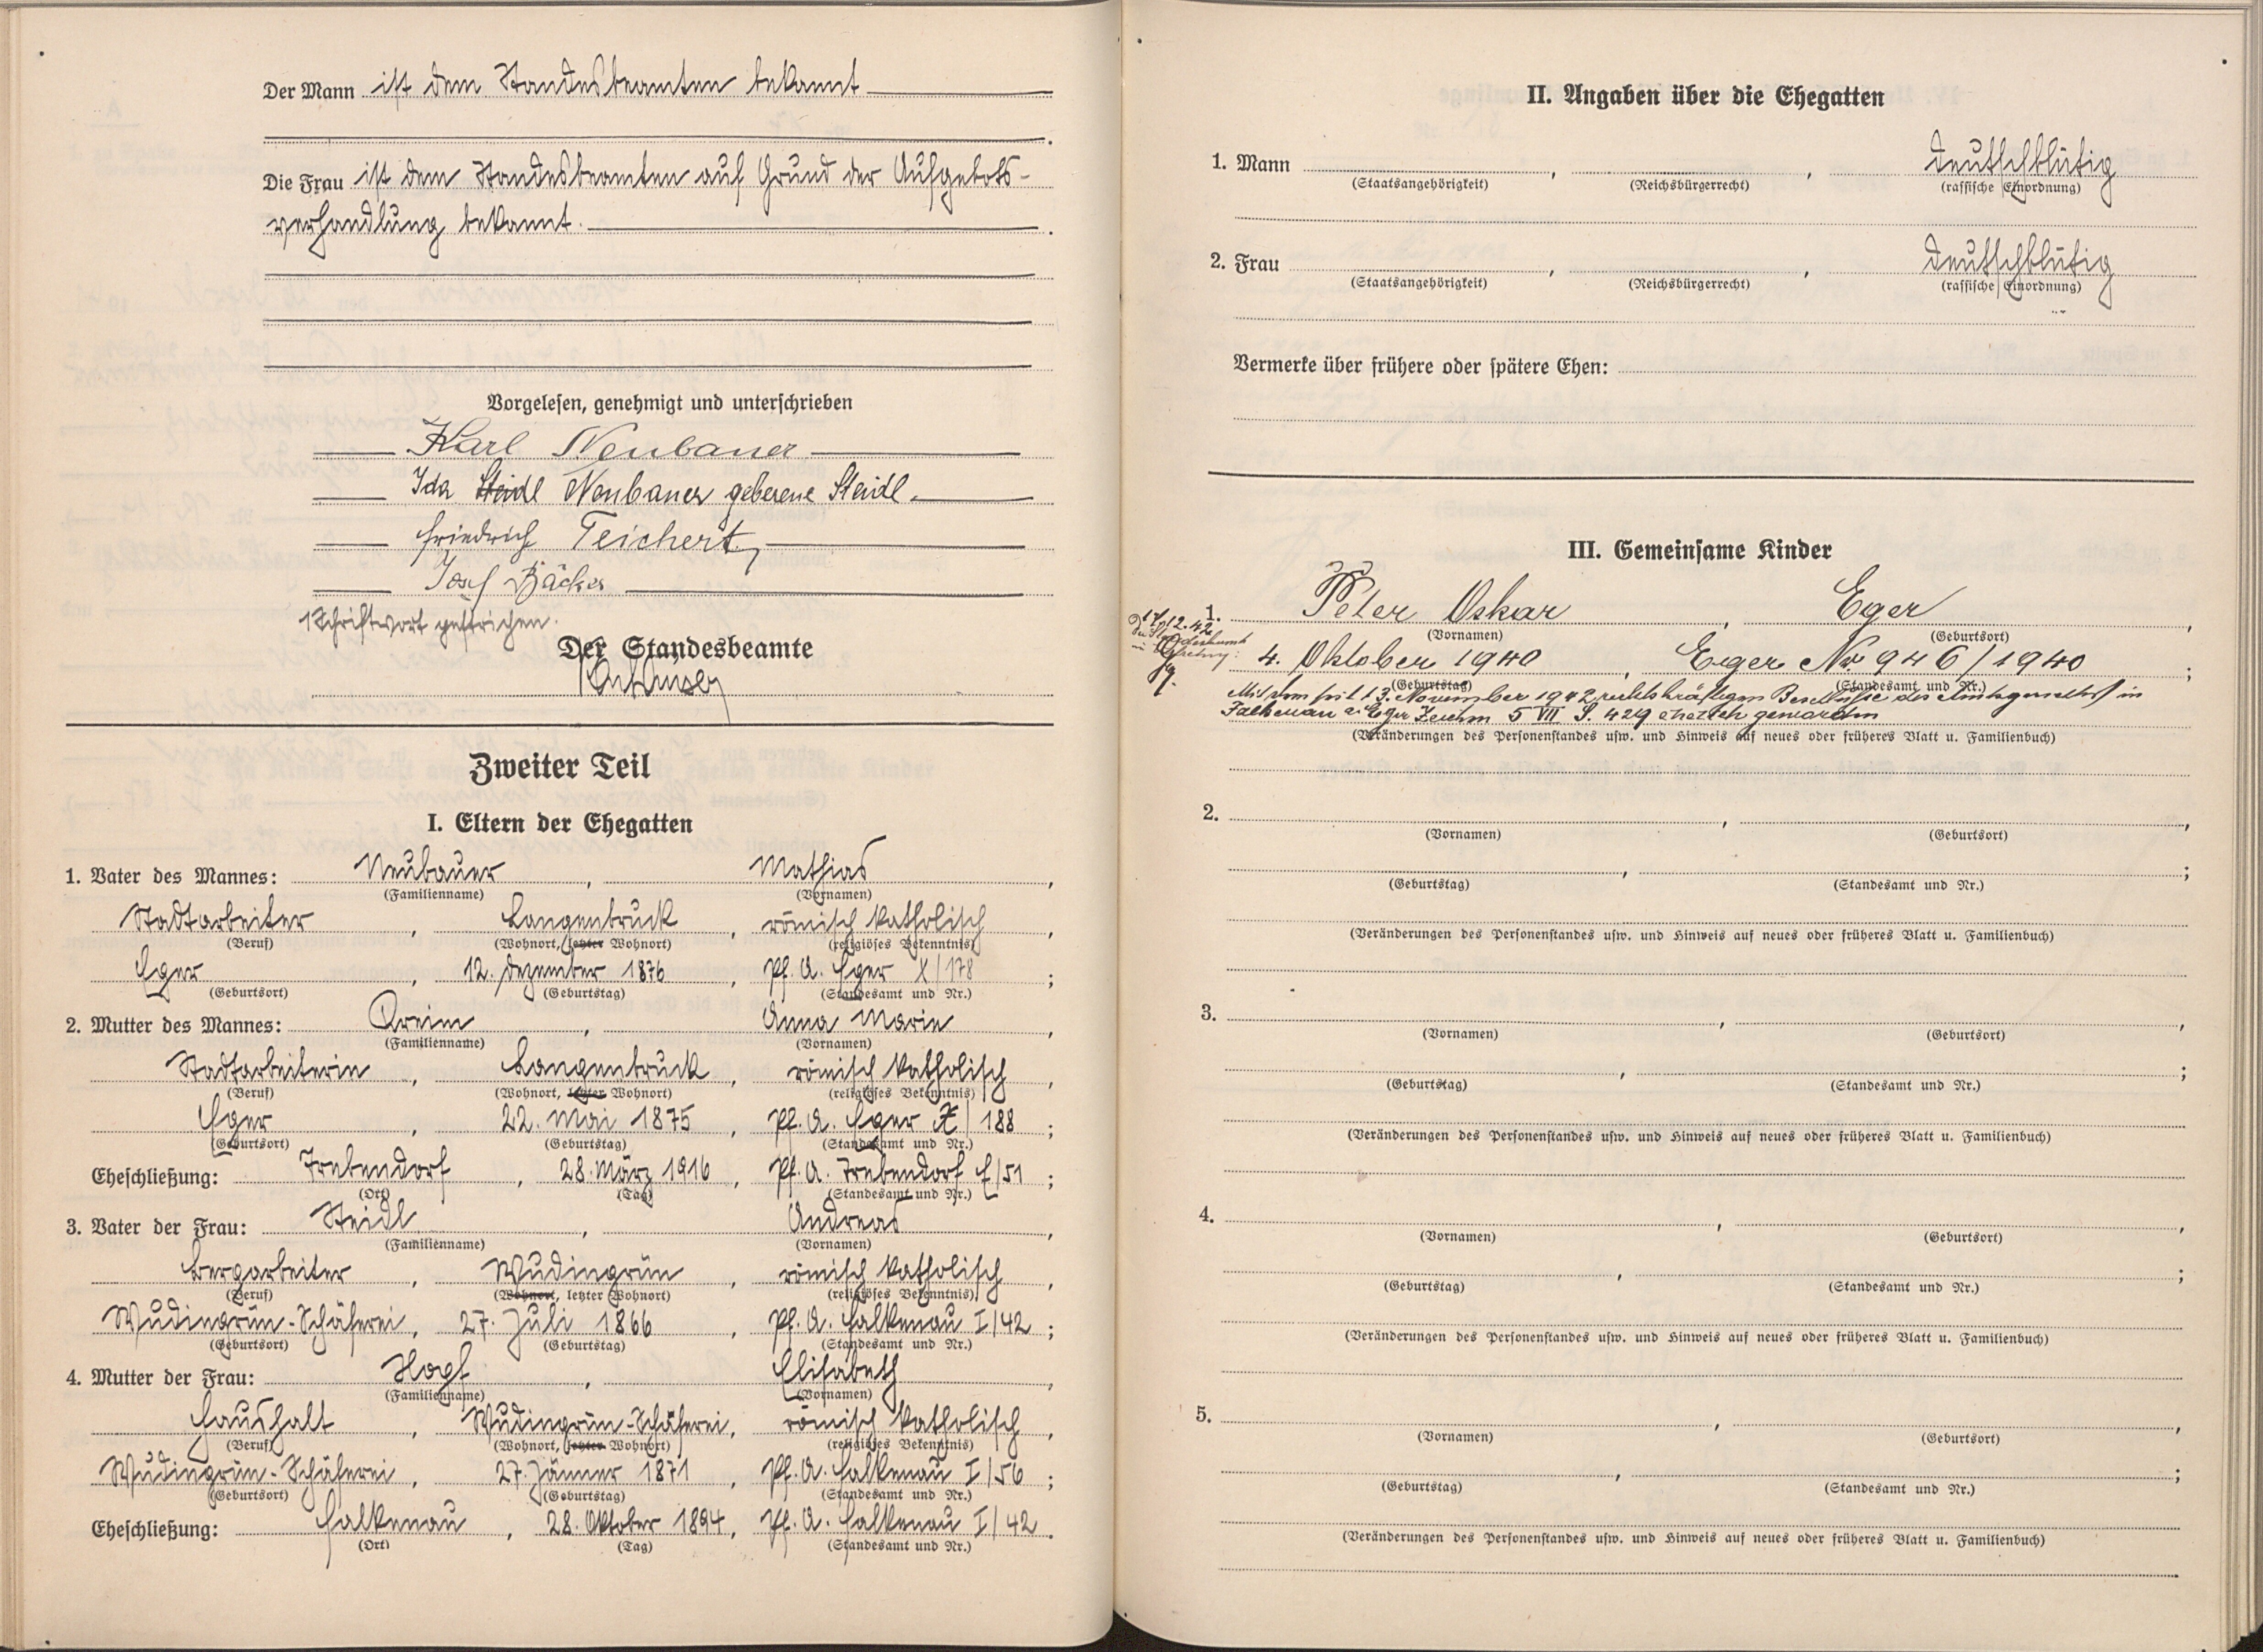 Der Mann ist dem Standesbeamten bekannt
Die Frau ist dem Standesbeamten auf Grund der Aufgebots-
verhandlung bekannt.
Vorgelesen, genehmigt und unterschrieben
Karl Neubauer
Ida Steidl Neubauer geborene Steidl
Friedrich Teichert
Josef Bäcker
1 Schriftwort gestrichen.
Der Standesbeamte
Zweiter Teil
I. Eltern der Ehegatten
1. Vater des Mannes: Neubauer, Mathias,
(Familienname) (Vornamen)
Stadtarbeiter, Langenbruck, römisch katholisch,
(Beruf) (Wohnort, letzter Wohnort) (religiöses Bekenntnis)
Eger, 12. Dezember 1876, Pf. A. Eger X/178;
(Geburtsort) (Geburtstag) (Standesamt und Nr.)
2. Mutter des Mannes: Dreim, Anna Marie,
(Familienname) (Vornamen)
Stadtarbeiterin, Langenbruck, römisch katholisch,
(Beruf) (Wohnort, letzter Wohnort) (religiöses Bekenntnis)
Eger, 22. Mai 1875, Pf. A. Eger X/188;
(Geburtsort) (Geburtstag) (Standesamt und Nr.)
Eheschließung: Trebendorf, 28. März 1916, Pf. A. Trebendorf E/51;
(Ort) (Tag) (Standesamt und Nr.)
3. Vater der Frau: Steidl, Andreas,
(Familienname) (Vornamen)
Bergarbeiter, Wudingrün, römisch katholisch,
(Beruf) (Wohnort, letzter Wohnort) (religiöses Bekenntnis)
Wudingrün-Schäferei, 27. Juli 1866, Pf. A. Falkenau I/42;
(Geburtsort) (Geburtstag) (Standesamt und Nr.)
4. Mutter der Frau: Hopf, Elisabeth,
(Familienname) (Vornamen)
Haushalt, Wudingrün-Schäferei, römisch katholisch,
(Beruf) (Wohnort, letzter Wohnort) (religiöses Bekenntnis)
Wudingrün-Schäferei, 27. Jänner 1871, Pf. A. Falkenau I/56;
(Geburtsort) (Geburtstag) (Standesamt und Nr.)
Eheschließung: Falkenau, 28. Oktober 1894, Pf. A. Falkenau I/42.
(Ort) (Tag) (Standesamt und Nr.)
II. Angaben über die Ehegatten
1. Mann , , deutschblütig
(Staatsangehörigkeit) (Reichsbürgerrecht) (rassische Einordnung)
2. Frau , , deutschblütig
(Staatsangehörigkeit) (Reichsbürgerrecht) (rassische Einordnung)
Vermerke über frühere oder spätere Ehen:
III. Gemeinsame Kinder
1. Peter Oskar, Eger,
(Vornamen) (Geburtsort)
17.12.42
4. Oktober 1940, Eger Nr. 946/1940;
(Geburtstag) (Standesamt und Nr.)
Mit dem seit 13. November 1942 rechtskräftigen Beschlusse des Amtsgerichts in
Falkenau a. Eger Zeichen 5 VII S. 429 ehelich geworden
(Veränderungen des Personenstandes usw. und Hinweis auf neues oder früheres Blatt u. Familienbuch)
2. , ,
(Vornamen) (Geburtsort)
, ;
(Geburtstag) (Standesamt und Nr.)
(Veränderungen des Personenstandes usw. und Hinweis auf neues oder früheres Blatt u. Familienbuch)
3. , ,
(Vornamen) (Geburtsort)
, ;
(Geburtstag) (Standesamt und Nr.)
(Veränderungen des Personenstandes usw. und Hinweis auf neues oder früheres Blatt u. Familienbuch)
4. , ,
(Vornamen) (Geburtsort)
, ;
(Geburtstag) (Standesamt und Nr.)
(Veränderungen des Personenstandes usw. und Hinweis auf neues oder früheres Blatt u. Familienbuch)
5. , ,
(Vornamen) (Geburtsort)
, ;
(Geburtstag) (Standesamt und Nr.)
(Veränderungen des Personenstandes usw. und Hinweis auf neues oder früheres Blatt u. Familienbuch)